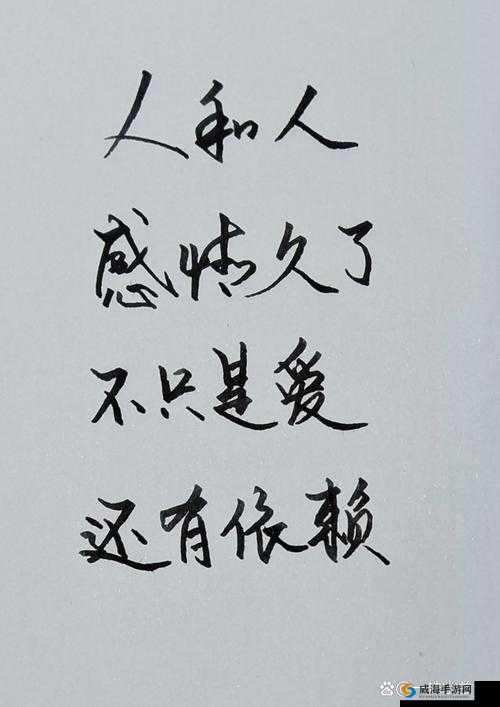 人和人
感情久了
不只是爱
还有依赖
威海手游网